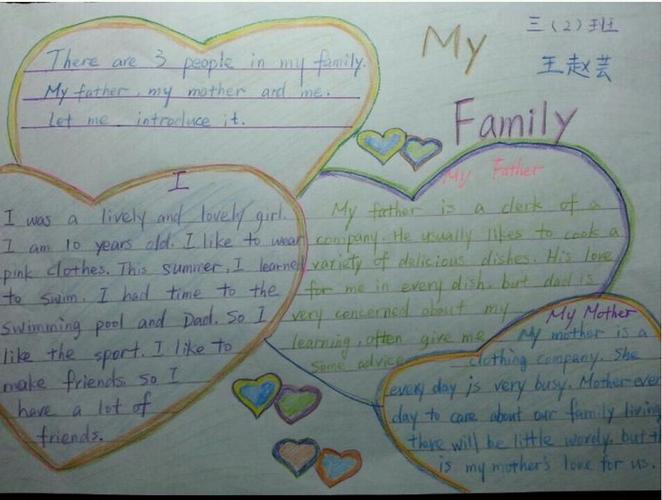 My
Family
三（2）班
王赵芸
There are 3 people in my family.
My father, my mother and me.
Let me introduce it.
I
I was a lively and lovely girl.
I am 10 years old. I like to wear
pink clothes. This summer, I learned
to swim. I had time to the
swimming pool and Dad. So I
like the sport. I like to
make friends. So I
have a lot of
friends.
My Father
My father is a clerk of a
company. He usually likes to cook a
variety of delicious dishes. His love
for me in every dish. but dad is
very concerned about my
learning, often give me
some advice
My Mother
My mother is a
clothing company. She
every day is very busy. Mother ever
day to care about our family living
there will be little wordy, but
is my mother's love for us.